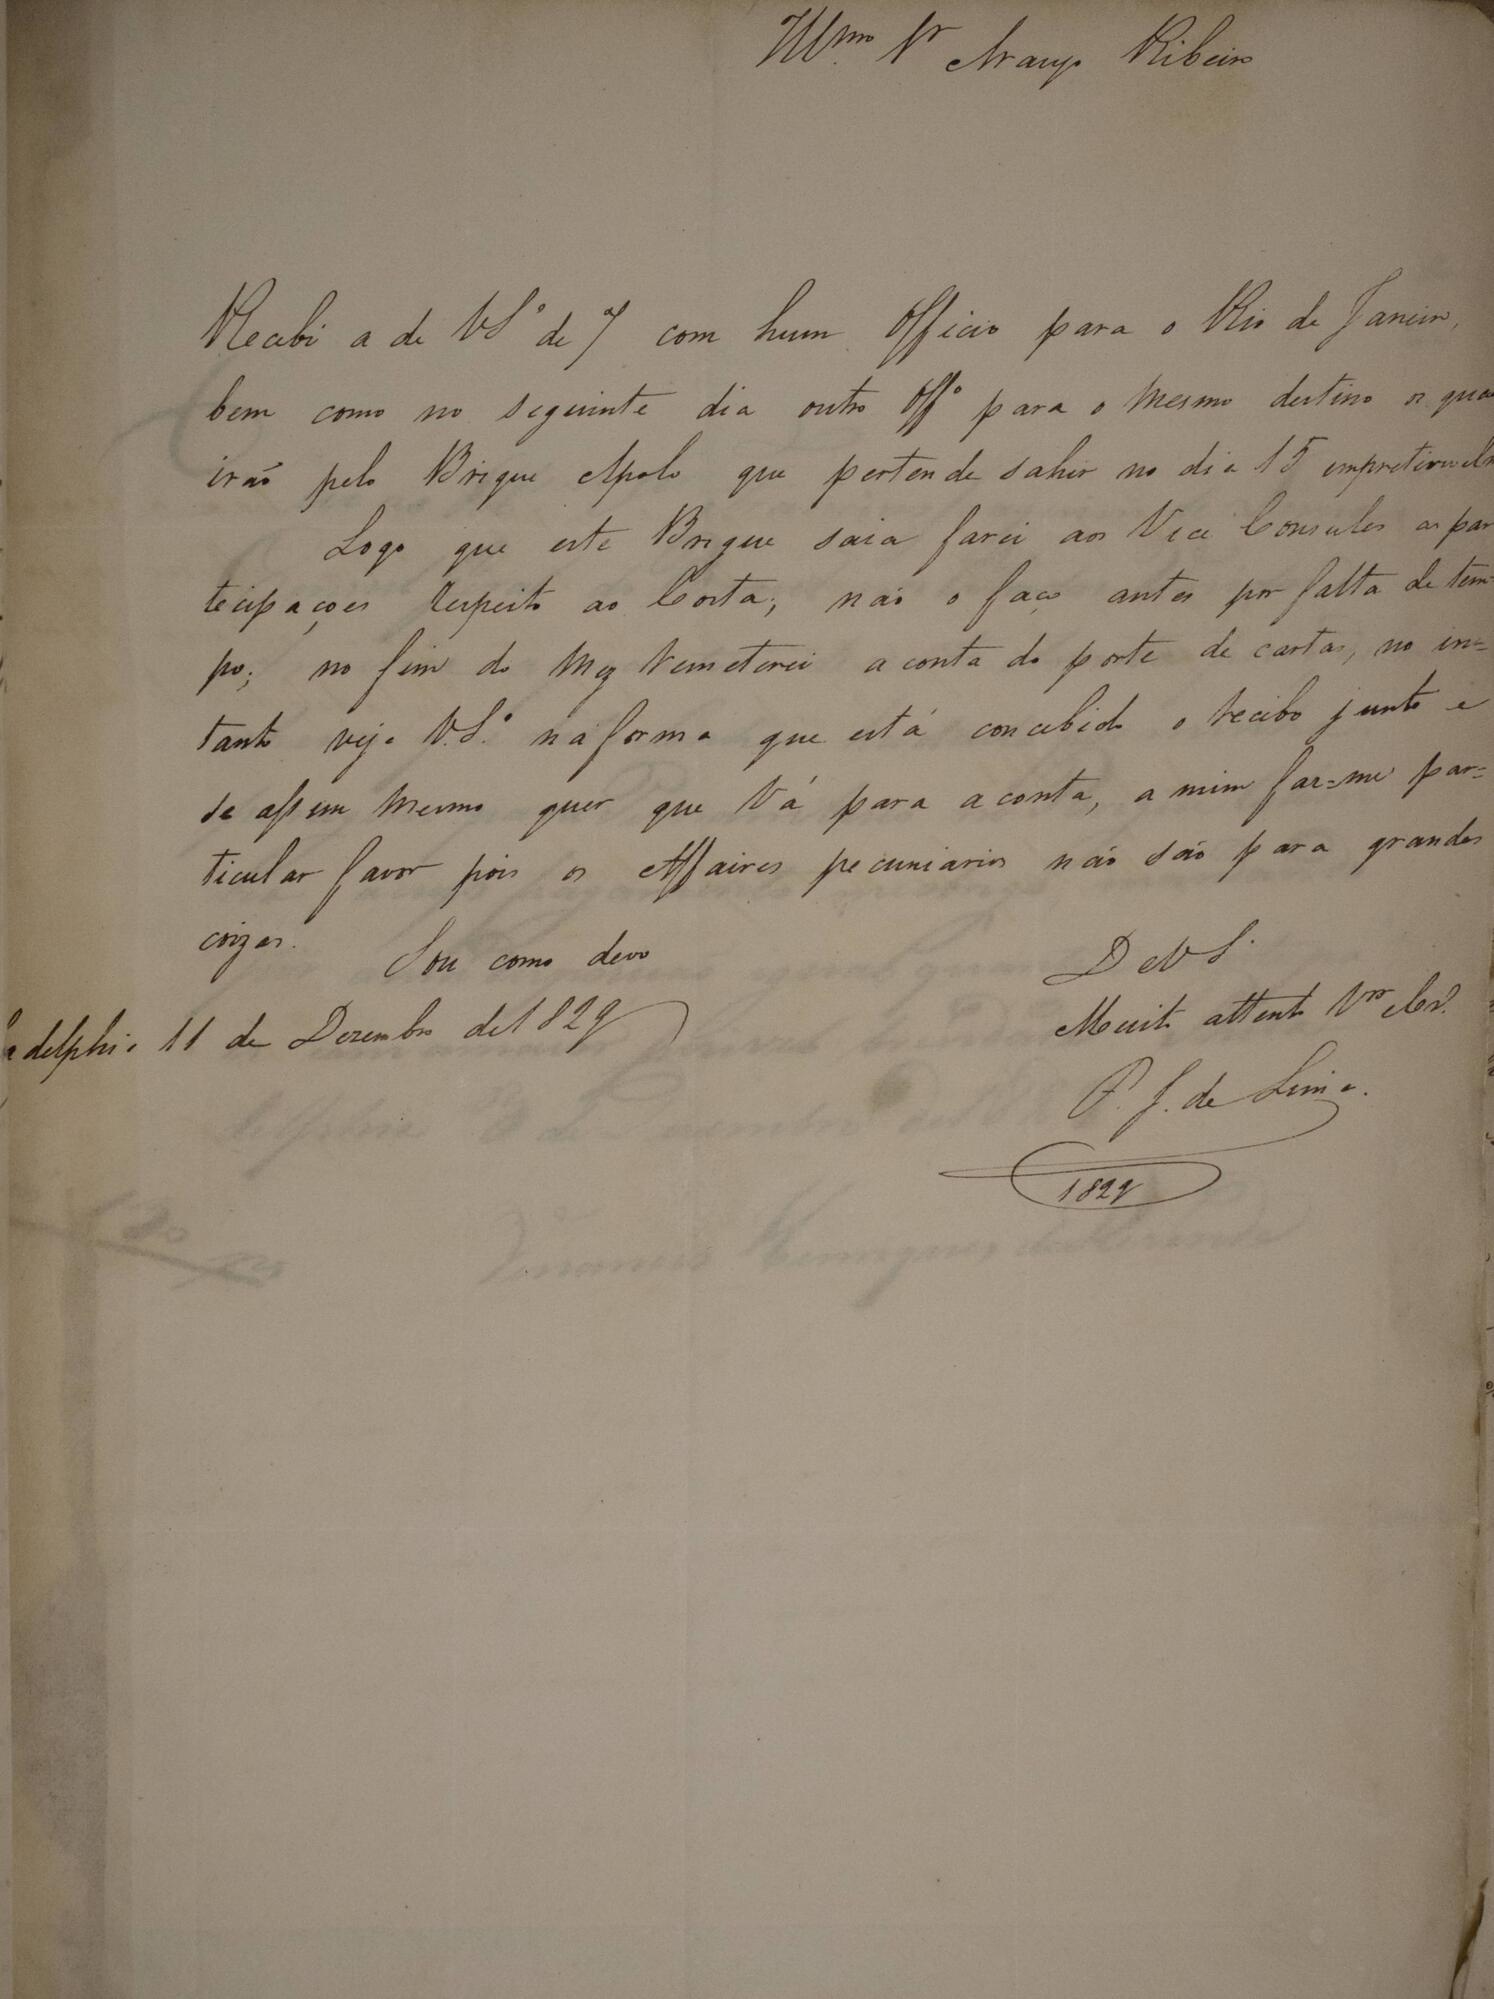 Illmo Sr Araujo Ribeiro
Recebi a de VSª de 7 com hum Officio para o Rio de Janeiro,
bem como no seguinte dia outro Offº para o mesmo destino os qua
irão pelo Brigue Apolo que pertende sahir no dia 15
Logo que este Brigue saia farei aos Vice Consules as par
tecipações respeito ao Costa; não o faço antes por falta de tem
po; no fim do mez remeterei a conta do porte de cartas, no in=
tanto veja V.Sª. na forma que está concebido o recibo junto e
se assim mesmo quer que vá para a conta, a mim far=me par=
ticular favor pois os Affaires pecuniarios não são para grandes
coizas.
Sou como devo
De VS.
adelphia 11 de Dezembro de 1829
Muito attento Vor Cr.
P. J. de Lima.
1829